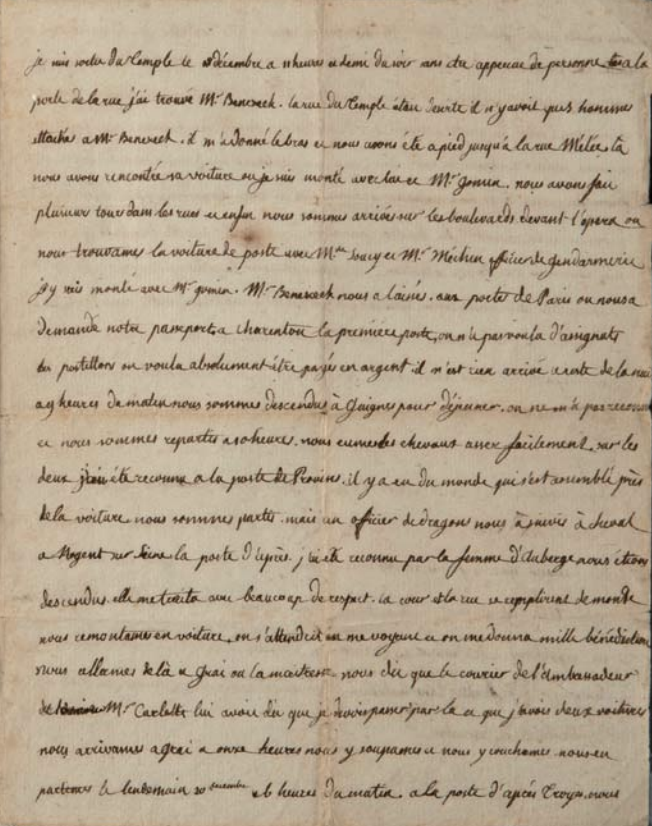 je suis sortie du temple le 18 décembre a 11 heures et demi du soir sans etre apperçue de personne a la
porte de la rue j'ai trouvé Mr. Benezech. la rue du temple étau deserte il n'y avoit que 3 hommes
attachés a Mr. Benezech. il m'a donné le bras et nous avons été a pied jusqu'à la rue Mélée la
nous avons rencontrée sa voiture ou je suis monté avec lui et Mr. Gomin. nous avons fai
plusieurs tours dans les rues et enfin nous sommes arrivés sur les boulevards devant l'opera ou
nous trouvames la voiture de poste avec Mde. Soucy et Mr. Mechin officier de gendarmerie
j'y suis monté avec Mr. gomin. Mr. Benezech nous a laissés. aux portes de Paris on nous a
demandé notre passeport, a charenton la premiere poste, on n'a pas voulu d'assignats
les postillons on voulu absolument être payés en argent. il n'est rien arrivé le reste de la nui
a 9 heures du matin nous sommes descendus à Guignes pour déjeuner. on ne m'a pas reconnu
et nous sommes repartis a 10 heures. nous eumes les chevaux assez facilement. sur les
deux j'ai été reconnu a la poste de Provins. il y a eu du monde qui s'est assemblé près
de la voiture. nous sommes partis. mais un officier de dragons nous à suivis à cheval
a Nogent sur Seine la poste d'après. j'ai été reconnu par la femme d'auberge nous étions
descendus. elle me traita avec beaucoup de respect. la cour et la rue se remplirent de monde
nous remontames en voiture, on s'attendrit en me voyant et on me donna mille bénédictions
nous allames de là a Grai ou la maitresse nous dit que le courier de l'Embassadeur
de Mr. Carletti lui avoit dit que je devois passer par la et que j'avois deux voitures
nous arrivames a grai a onze heures nous y soupames et nous y couchames. nous en
partimes le lendemain 20 decembre a 6 heures du matin. a la poste d'après Troyes. nous